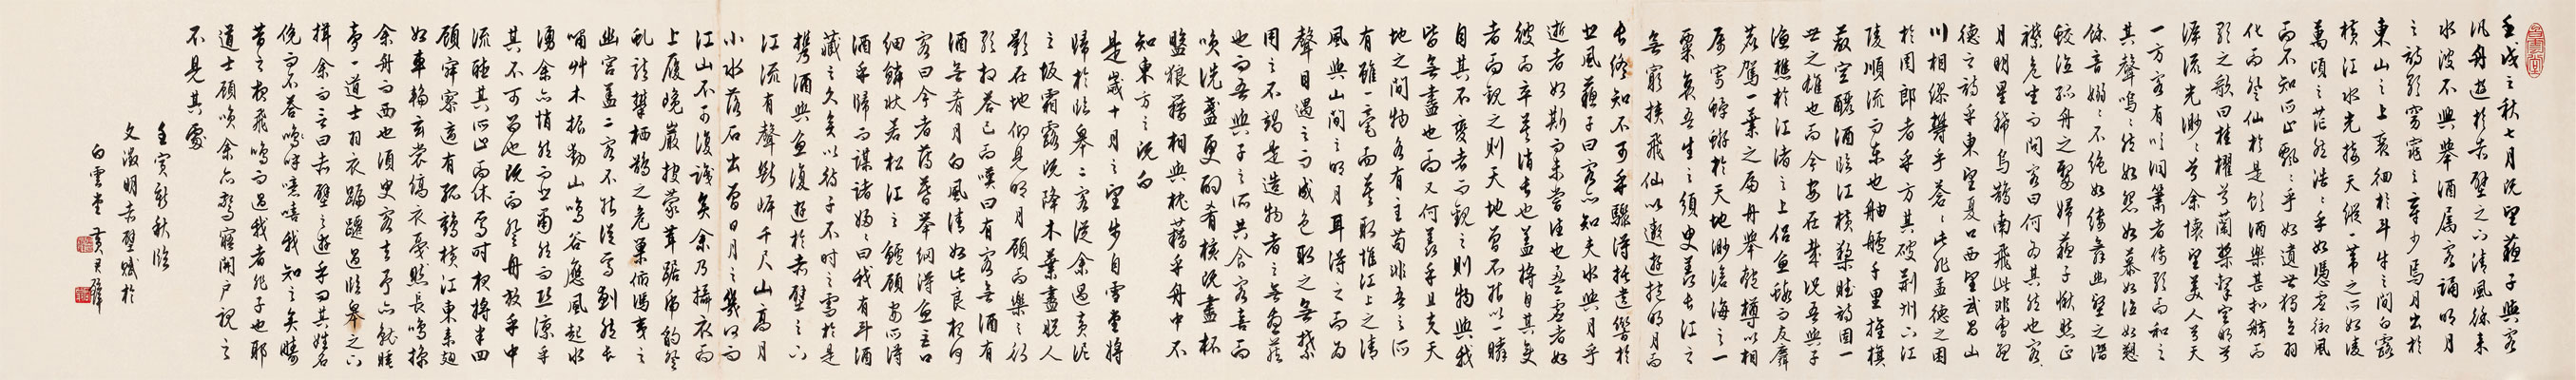 壬戌之秋七月既望蘇子與客
汎舟遊於赤壁之下清風徐來
水波不興舉酒屬客誦明月
之詩歌窈窕之章少焉月出於
東山之上徘徊於斗牛之間白露
橫江水光接天縱一葦之所如凌
萬頃之茫然浩浩乎如馮虛御風
而不知所止飄飄乎如遺世獨立羽
化而登仙於是飲酒樂甚扣舷而
歌之歌曰桂櫂兮蘭槳擊空明兮
泝流光渺渺兮余懷望美人兮天
一方客有吹洞簫者倚歌而和之
其聲嗚嗚然如怨如慕如泣如愬
餘音嫋嫋不絕如縷舞幽壑之潛
蛟泣孤舟之嫠婦蘇子愀然正
襟危坐而問客曰何為其然也客
月明星稀烏鵲南飛此非曹孟
德之詩乎東望夏口西望武昌山
川相繆鬱乎蒼蒼此非孟德之困
於周郎者乎方其破荊州下江
陵順流而東也舳艫千里旌旗
蔽空釃酒臨江橫槊賦詩固一
世之雄也而今安在哉況吾與子
漁樵於江渚之上侶魚蝦而友麋
鹿駕一葉之扁舟舉匏樽以相
屬寄蜉蝣於天地渺滄海之一
粟哀吾生之須臾羨長江之
無窮挾飛仙以遨遊抱明月而
長終知不可乎驟得託遺響於
悲風蘇子曰客亦知夫水與月乎
逝者如斯而未嘗往也盈虛者如
彼而卒莫消長也蓋將自其變
者而觀之則天地曾不能以一瞬
自其不變者而觀之則物與我
皆無盡也而又何羨乎且夫天
地之間物各有主苟非吾之所
有雖一毫而莫取惟江上之清
風與山間之明月耳得之而為
聲目遇之而成色取之無禁
用之不竭是造物者之無盡藏
也而吾與子之所共食客喜而
笑洗盞更酌肴核既盡杯
盤狼藉相與枕藉乎舟中不
知東方之既白
是歲十月之望步自雪堂將
歸於臨皋二客從余過黃泥
之坂霜露既降木葉盡脫人
影在地仰見明月顧而樂之行
歌相答已而嘆曰有客無酒有
酒無肴月白風清如此良夜何
客曰今者薄暮舉網得魚巨口
細鱗狀若松江之鱸顧安所得
酒乎歸而謀諸婦婦曰我有斗酒
藏之久矣以待子不時之需於是
攜酒與魚復遊於赤壁之下
江流有聲斷岸千尺山高月
小水落石出曾日月之幾何而
江山不可復識矣余乃攝衣而
上履巉巖披蒙茸踞虎豹登
虬龍攀栖鶻之危巢俯馮夷之
幽宮蓋二客不能從焉劃然長
嘯草木振動山鳴谷應風起水
湧余亦悄然而悲肅然而恐凜乎
其不可留也既而登舟放乎中
流聽其所止而休焉時夜將半四
顧寂寥適有孤鶴橫江東來翅
如車輪玄裳縞衣戛然長鳴掠
余舟而西也須臾客去予亦就睡
夢一道士羽衣蹁躚過臨皋之下
揖余而言曰赤壁之遊樂乎問其姓名
俛而不答嗚呼噫嘻我知之矣疇
昔之夜飛鳴而過我者非子也耶
道士顧笑余亦驚寤開戶視之
不見其處
壬寅新秋臨
文徵明赤壁賦於
白雲堂 黃君璧